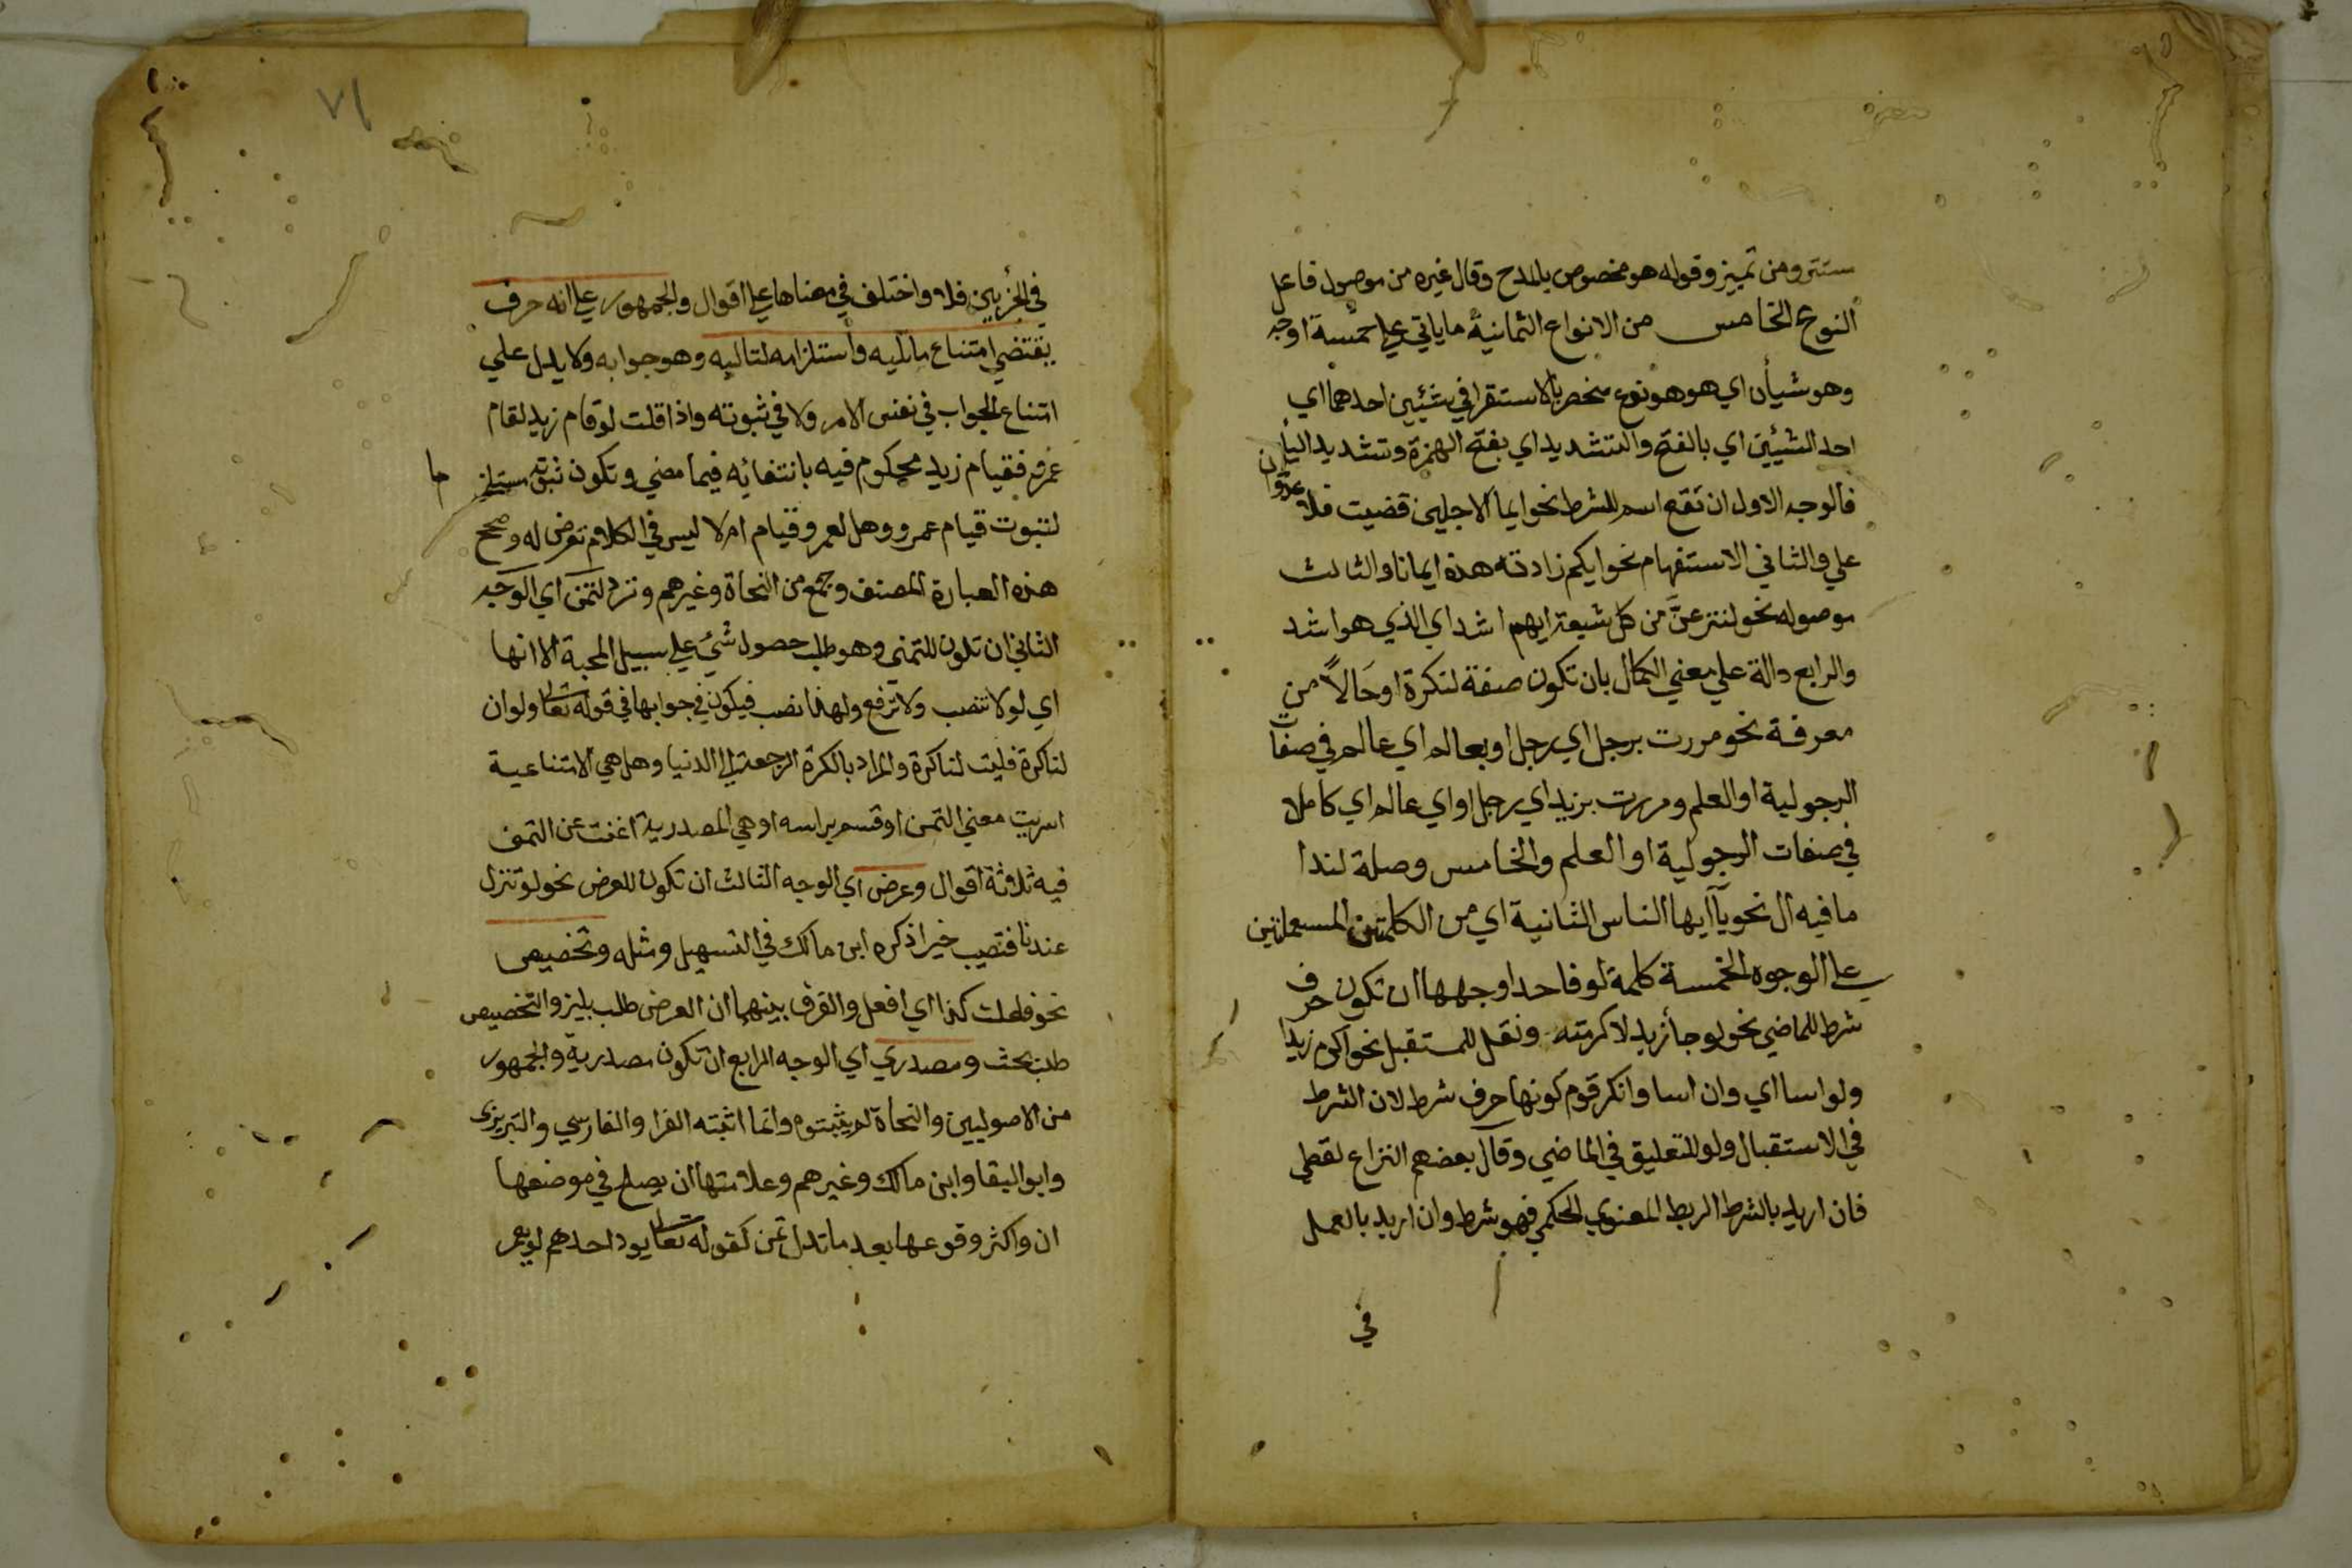 ستتر ومن تمييز وقوله هو مخصوص بالمدح وقال غيره من موصول فاعل
النوع الخامس من الانواع الثمانية ماياتي علي خمسة اوجه
وهو شيأن اي هو هو نوع منحصر بالاستقرا في شئيين احدهما اي
احد الشيئين اي بالفتح والتشديد اي بفتح الهمزة وتشديد اليأ
فالوجه الاول ان تقع اسم للشرط نحو ايما الاجلين قضيت فلا عدوان
علي والثاني الاستفهام نحو ايكم زادته هذه ايمانا والثالث
موصوله نحو لننزعنَّ من كل شيعة ايهم اشد اي الذي هو اشد
والرابع دالة علي معني الكمال بان تكون صفة لنكرة او حَالاً من
معرفة نحو مررت برجل اي رجل او بعالم اي عالم في صفات
الرجولية او العلم ومررت بزيد اي رجل او اي عالم اي كاملا
في صفات الرجولية او العلم والخامس وصلة لندا
مافيه ال نحو يآ ايها الناس الثانية اي من الكلمتين المستعملتين
علي الوجوه الخمسة كلمة لو فاحد اوجهها ان تكون حرف
شرط للماضي نحو لو جأ زيد لاكرمته ونقل للمستقبل نحو اكرم زيدا
ولو اسا اي وان اسا وانكر قوم كونها حرف شرط لان الشرط
في الاستقبال ولو للتعليق في الماضي وقال بعضهم النزاع لفظي
فان اريد بالشرط الربط المعنوي الحكمي فهو شرط وان اريد بالعمل
في
٧١
في الجزيين فلا واختلف في معناها علي اقوال والجمهور علي انه حرف
يقتضي امتناع مايليه واستلزامه لتاليه وهو جوابه ولا يدل علي
امتناع الجواب في نفس الامر ولا في ثبوته واذا قلت لو قام زيد لقام
عمرو فقيام زيد محكوم فيه بانتفائه فيما مضي وتكون ثبوته مستلزما
لثبوت قيام عمرو وهل لعمرو قيام ام لا ليس في الكلام تعرض له وصحح
هذه العبارة المصنف وجمع من النحاة وغيرهم وترد لتمن اي الوجه
الثاني ان تكون للتمني وهو طلب حصول شئ علي سبيل المحبة الا انها
اي لو لا تنصب ولا ترفع ولهذا نصب فيكون في جوابها في قوله تعالي ولو ان
لنا كرة فليت لنا كرة والمراد بالكرة الرجعة الي الدنيا وهل هي الامتناعية
اشربت معني التمن او قسم براسه او هي المصدرية اغنت عن التمني
فيه ثلاثة اقوال وعرض اي الوجه الثالث ان تكون للعرض نحو لو تنزل
عندنا فتصيب خيرا ذكره ابن مالك في التسهيل ومثله وتخصيص
نحو كذا اي افعل والفرق بينهما ان العرض طلب بلين والتخصيص
طلب بحث ومصدري اي الوجه الرابع ان تكون مصدرية والجمهور
من الاصوليين والنحاة لم يثبتوه وانما اثبته الفرا والفارسي والتبريزي
وابو البقا وابن مالك وغيرهم وعلامتها ان يصلح في موضعها
ان واكثر وقوعها بعد ما تدل تمن كقوله تعالي يود احدهم لو يعمر